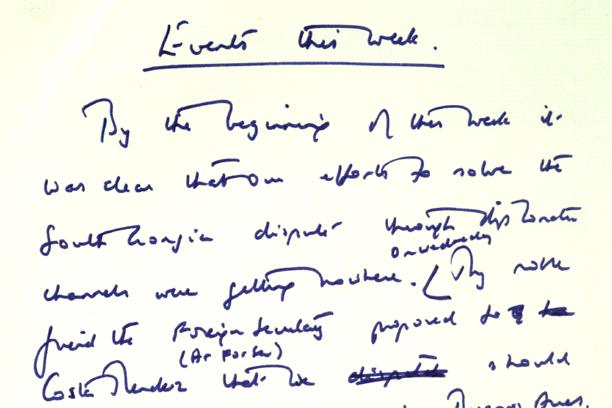 Events this week.
By the beginning of this week it
was clear that our efforts to solve the
South Georgia dispute through diplomatic
on Wednesday
channels were getting nowhere. My noble
friend the Foreign Secretary proposed to
(Ar For Sec)
Costa Mendez that we dispatch should
Buenos Aires,